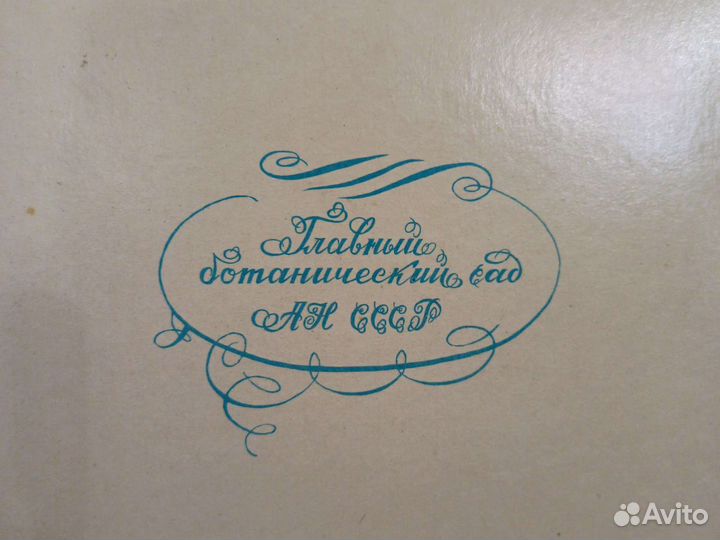 Главный
ботанический сад
АН СССР
Avito